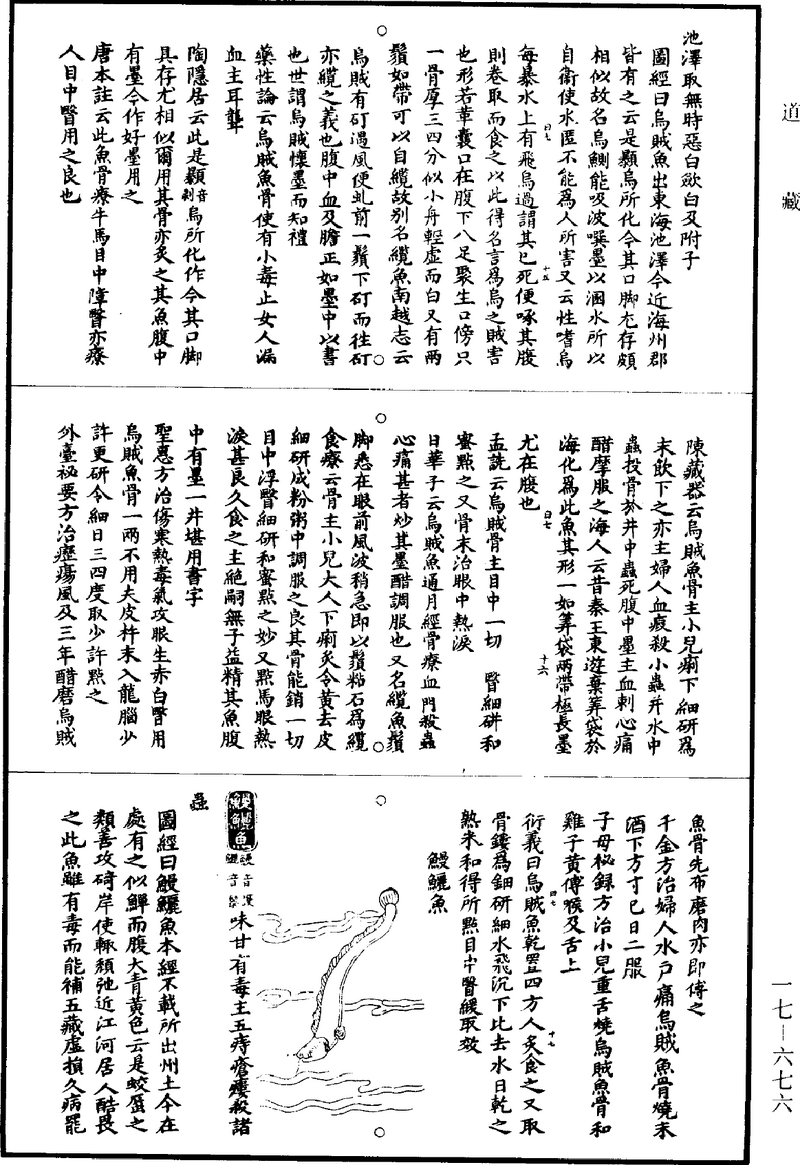 道藏
池澤取無時惡白歛白及附子
圖經曰烏賊魚出東海池澤今近海州郡
皆有之云是鸔烏所化今其口脚尤存頗
相似故名烏鰂能吸波噀墨以溷水所以
自衛使水匿不能爲人所害又云性嗜烏
每暴水上有飛烏過謂其已死便啄其腹
則卷取而食之以此得名言爲烏之賊害
也形若革囊口在腹下八足聚生口傍只
一骨厚三四分似小舟輕虛而白又有兩
鬚如帶可以自纜故别名纜魚南越志云
烏賊有矴遇風便虬前一鬚下矴而住矴
亦纜之義也腹中血及膽正如墨中以書
也世謂烏賊懷墨而知禮
藥性論云烏賊魚骨使有小毒止女人漏
血主耳聾
陶隱居云此是鸔音剝烏所化作今其口脚
具存尤相似爾用其骨亦炙之其魚腹中
有墨今作好墨用之
唐本註云此魚骨療牛馬目中障瞖亦療
人目中瞖用之良也
陳藏器云烏賊魚骨主小兒痢下細研爲
末飲下之亦主婦人血瘕殺小蟲并水中
蟲投骨於井中蟲死腹中墨主血刺心痛
醋摩服之海人云昔秦王東遊棄筭袋於
海化爲此魚其形一如筭袋兩帶極長墨
尤在腹也
孟詵云烏賊骨主目中一切瞖細研和
蜜點之又骨末治眼中熱淚
日華子云烏賊魚通月經骨療血門殺蟲
心痛甚者炒其墨醋調服也又名纜魚鬚
脚悉在眼前風波稍急即以鬚粘石爲纜
食療云骨主小兒大人下痢炙令黃去皮
細研成粉粥中調服之良其骨能銷一切
目中浮瞖細研和蜜點之妙又點馬眼熱
淚甚良久食之主絶嗣無子益精其魚腹
中有墨一片堪用書字
聖惠方治傷寒熱毒氣攻眼生赤白瞖用
烏賊魚骨一兩不用夫皮杵末入龍腦少
許更研令細日三四度取少許點之
外臺祕要方治癧瘍風及三年醋磨烏賊
魚骨先布磨肉赤即傅之
千金方治婦人水戸痛烏賊魚骨燒末
酒下方寸匕日二服
子母祕録方治小兒重舌燒烏賊魚骨和
雞子黃傅喉及舌上
衍義曰烏賊魚乾罯四方人炙食之又取
骨鏤爲鈿研細水飛沉下比去水日乾之
熟米和得所點目中瞖緩取效
鰻鱺魚
鰻鱺魚
味甘有毒主五痔瘡瘻殺諸
蟲
圖經曰鰻鱺魚本經不載所出州土今在
處有之似鱓而腹大青黃色云是蛟蜃之
類善攻碕岸使輒頹弛近江河居人酷畏
之此魚雖有毒而能補五藏虛損久病罷
一七—六七六